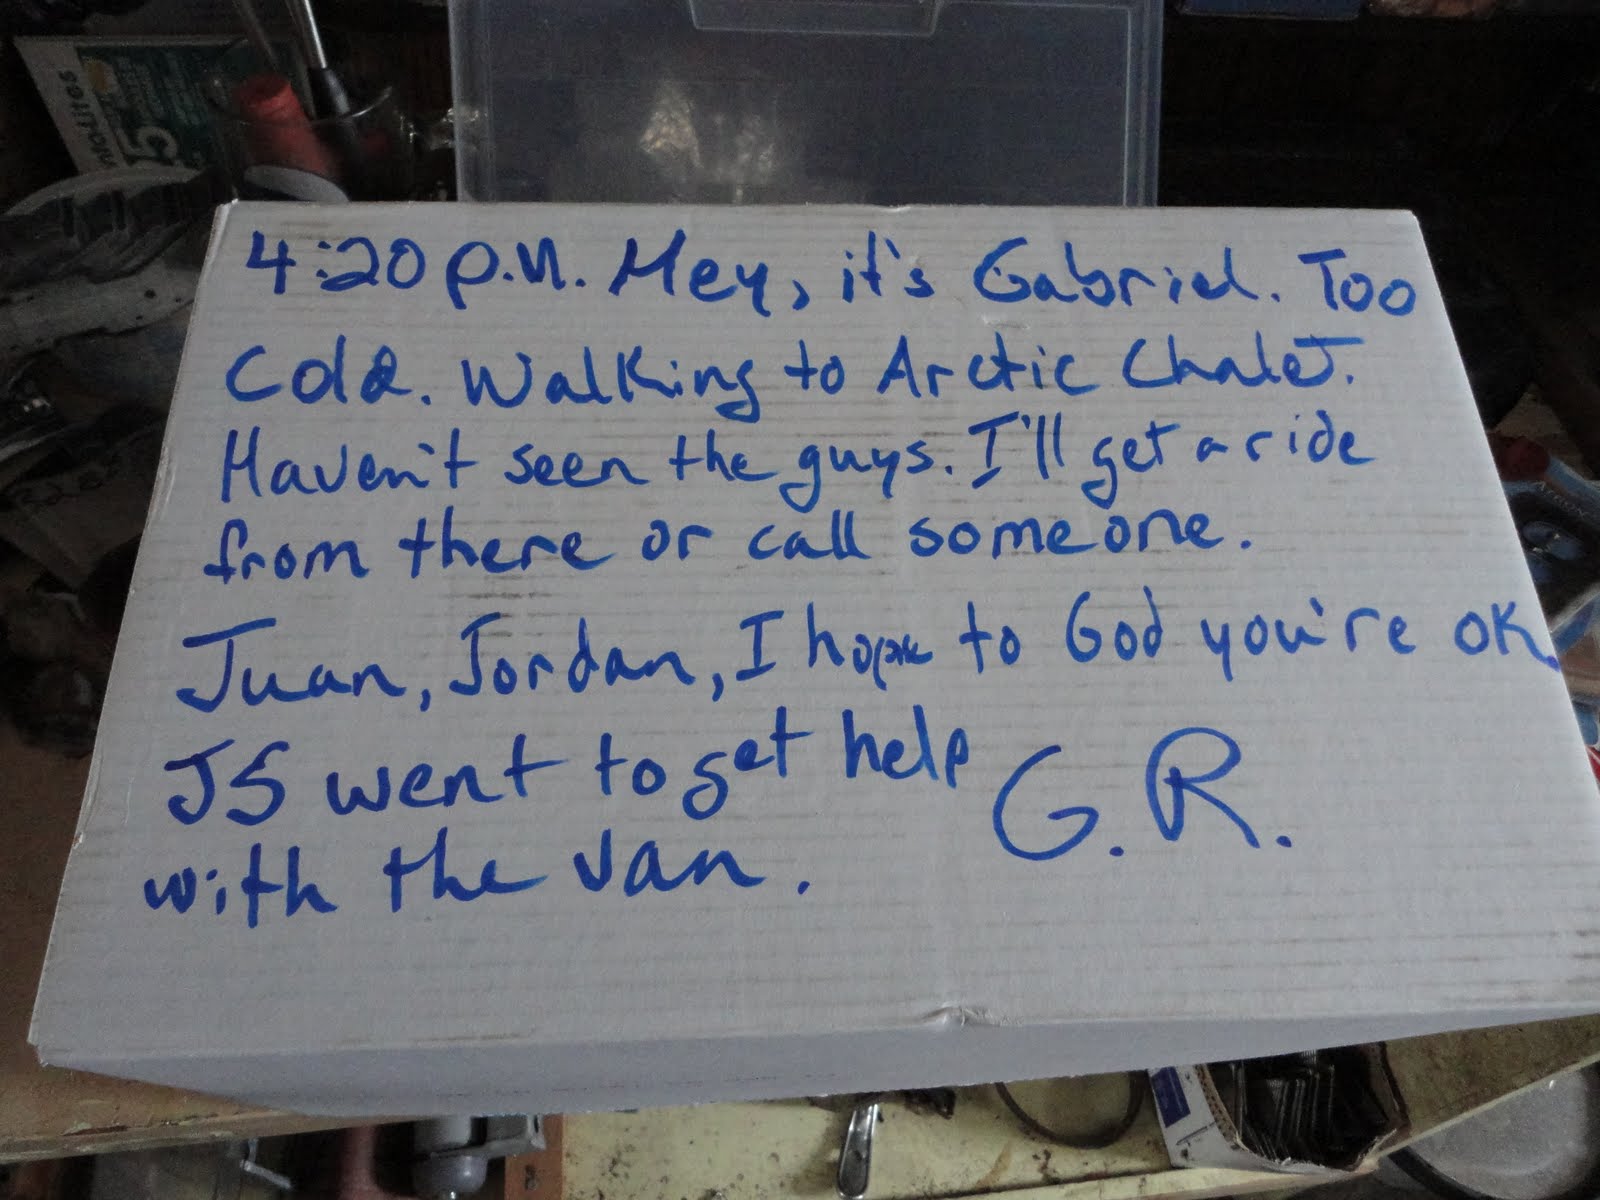 nic-Lites
5
4:20 p.m. Hey, it's Gabriel. Too
Cold. Walking to Arctic Chalet.
Haven't seen the guys. I'll get a ride
from there or call someone.
Juan, Jordan, I hope to God you're ok.
JS went to get help
with the van.
G.R.